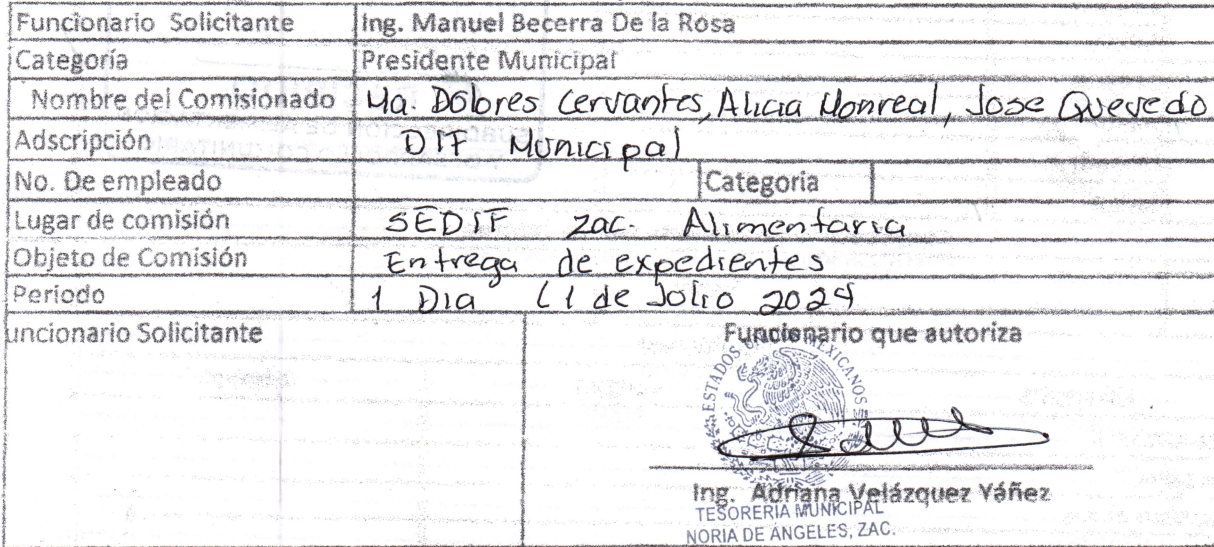 Funcionario Solicitante Ing. Manuel Becerra De la Rosa
Categoría Presidente Municipal
Nombre del Comisionado Ma. Dolores Cervantes, Alicia Monreal, Jose Quevedo
Adscripción DIF Municipal
No. De empleado Categoria
Lugar de comisión SEDIF Zac. Alimentaria
Objeto de Comisión Entrega de expedientes
Periodo 1 Dia (1 de Julio 2024
uncionario Solicitante Funcionario que autoriza
ESTADOS UNIDOS MEXICANOS
Ing. Adriana Velázquez Yáñez
TESORERIA MUNICIPAL
NORIA DE ANGELES, ZAC.